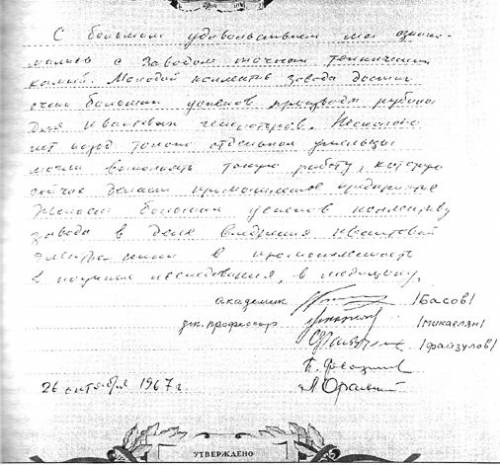 С большим удовольствием мы озна-
мились с Заводом точных технических
камней. Молодой коллектив завода достиг
очень больших успехов рубина
для квантовых генераторов. Несколько
лет назад только отдельные умельцы
могли выполнять такую работу, которую
сейчас делают промышленное предприятие
Желаем больших успехов коллективу
завода в деле внедрения квантовой
электроники в промышленность
в научные исследования, в медицину.
академик /Басов/
профессор /Микаелян/
/Файзулов/
26 октября 1967 г.
УТВЕРЖДЕНО